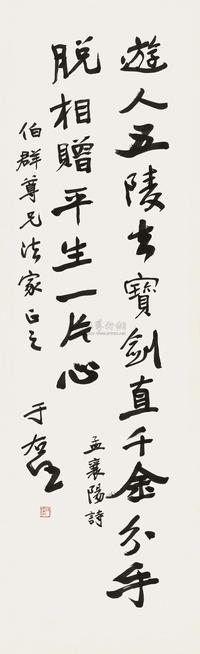 遊人五陵去寶劍直千金分手
脫相贈平生一片心
孟襄陽詩
伯群尊兄法家正之
于右任